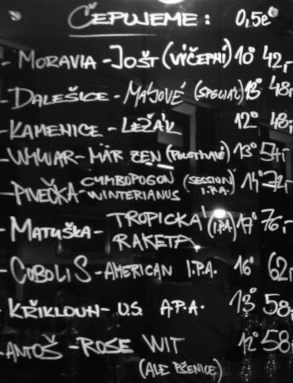 ČEPUJEME: 0,5e
- MORAVIA - JOŠT (VÍČEPNÍ) 10° 42,-
- DALEŠICE - MAJOVÉ (SPECIÁL) 13° 48,-
KAMENICE - LEŽÁK 12° 48,-
- WYWAR - MÄRZEN (POLOTMAVÉ) 13° 54,-
- PIVEČKA - CYMBOPOGON WINTERIANUS (SESSION I.P.A.) 14°
- MATUŠKA - TROPICKÁ RAKETA (IPA) 17° 76,-
- COBOLIS - AMERICAN I.P.A. 16° 62,
- KŘIKLOUN - U.S. A.P.A. 13° 58,
- ANTOŠ - ROSE WIT 12° 58,
(ALE PŠENICE)